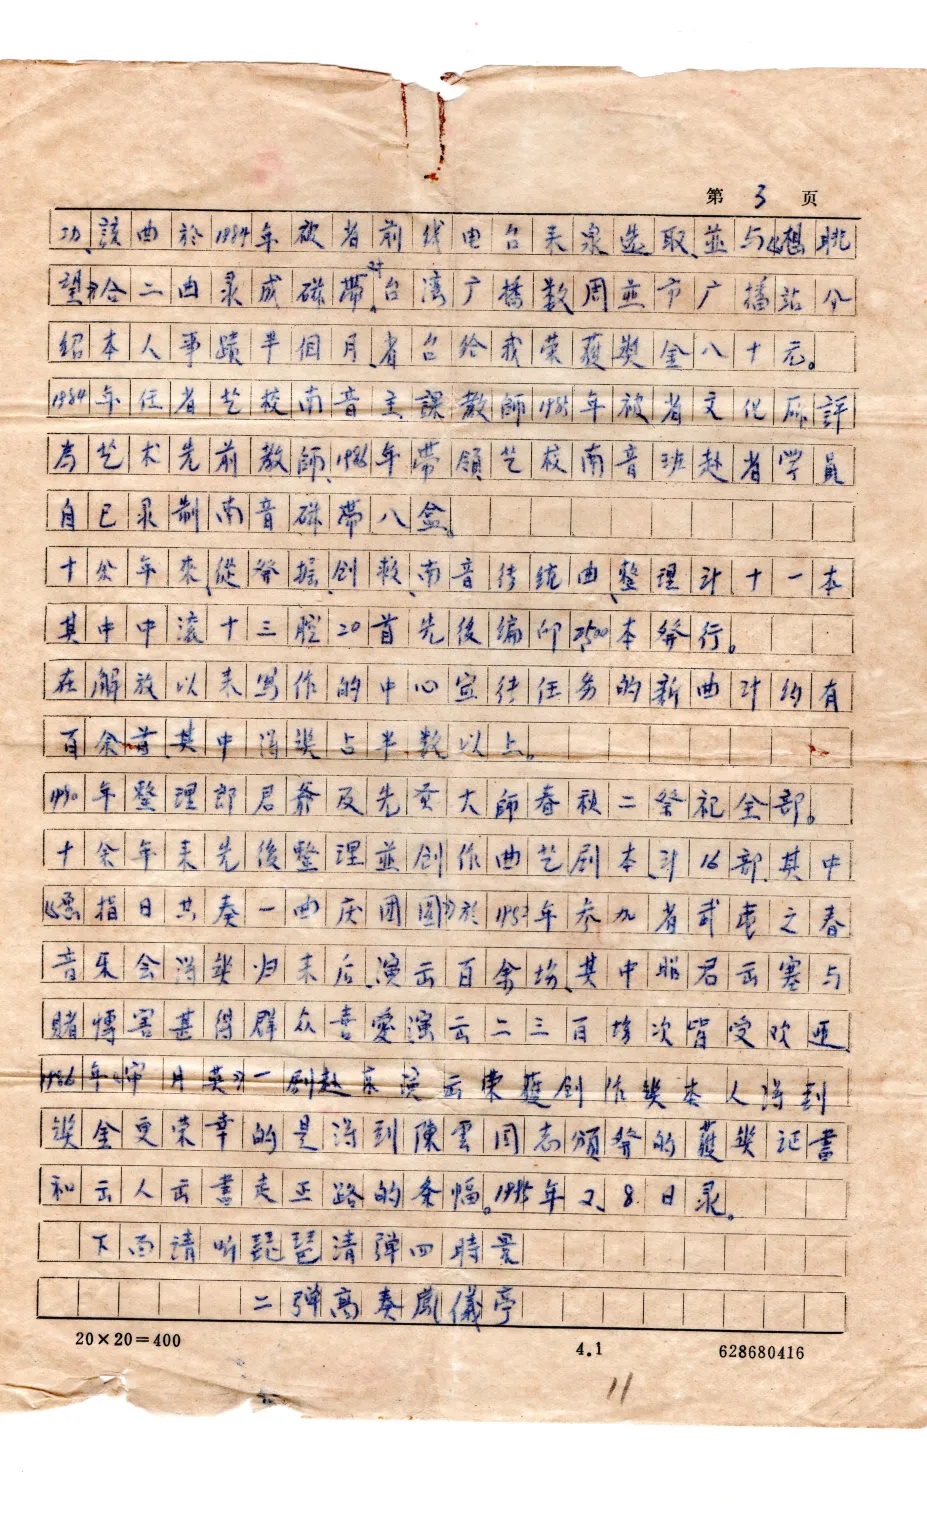 第 3 页
功,該曲於1984年被省前线电台来泉选取,並与《想眺
望》合二曲录成磁帶,对台湾广播数周並市广播站介
绍本人事蹟半個月,省台给我荣獲奖金八十元。
1984年任省艺校南音主課教師1985年被省文化厅評
為艺术先前教師,1986年帶領艺校南音班赴省学員
自己录制南音磁帶八盒。
十余年來,從發掘,创救,南音传统曲,整理計十一本
其中中滚十三腔20首先後编印2500本發行。
在解放以来写作的中心宣传任务的新曲計约有
百余首,其中得奖占半数以上。
1990年整理郎君爺及先贡大師春秋二祭祀全部。
十余年来先後整理並创作曲艺剧本,計16部,其中
《屈指日共奏一曲庆团圆》於1982年参加省武夷之春
音乐会得奖归来后,演出百余場,其中昭君出塞与
賭愽害甚得群众喜愛演出二三百場次皆受欢迎
1986年《审月英》一剧赴京演出荣獲创作奖本人得到
奖金更荣幸的是得到陳雲同志頒發的獲奖证書
和出人出書走正路的条幅。1995年2.8.日录。
下面请听琵琶清弹四時景
二弹高奏鳳儀亭
20×20=400 4.1 628680416
11